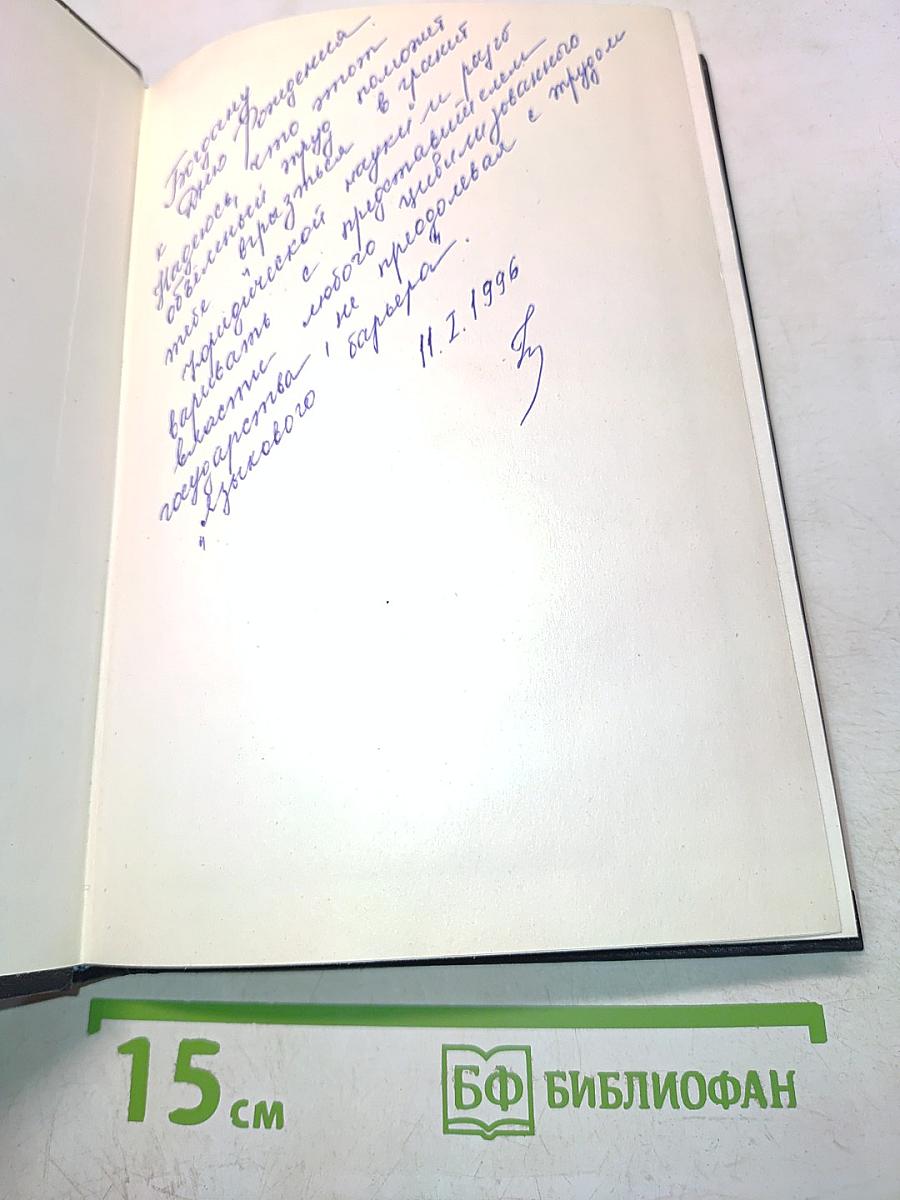 Богдану
к Дню Рождения.
Надеюсь, что этот
объёмный труд поможет
тебе вгрызться в гранит
юридической науки и разго
варивать с представителем
власти любого цивилизованного
государства, не преодолевая с трудом
"языкового барьера".
11.I.1996
15 см
БФ БИБЛИОФАН